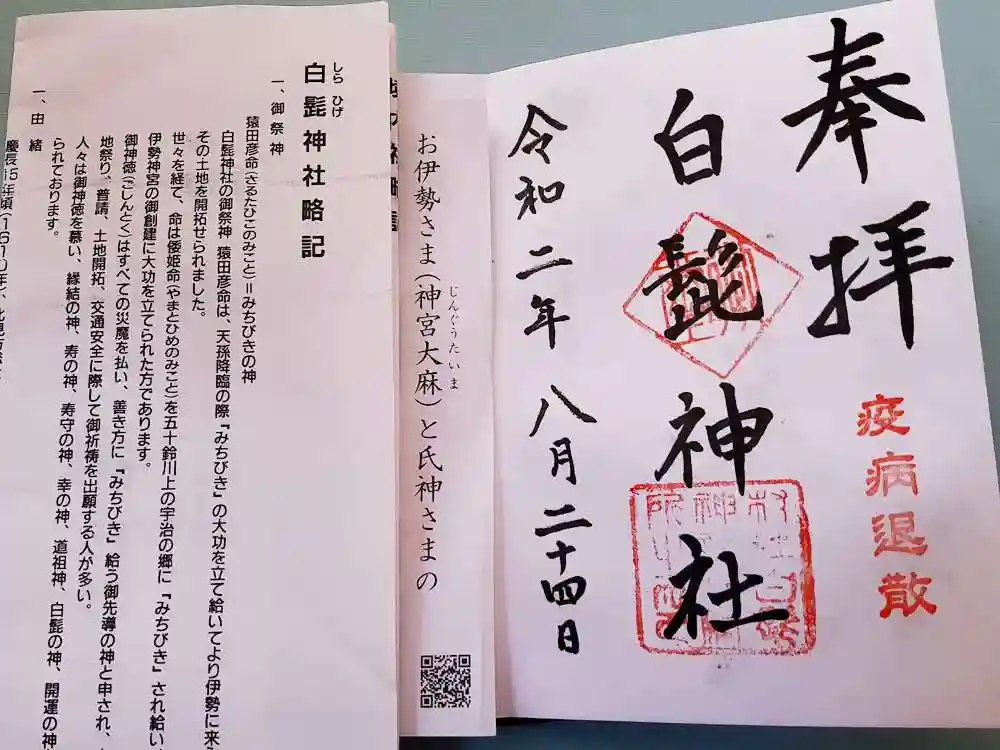 奉拝
疫病退散
白髭神社
令和二年 八月二十四日
お伊勢さま(神宮大麻)と氏神さまの
じんぐうたいま
白髭神社略記
しら ひげ
一、御祭神
猿田彦命(さるたひこのみこと)=みちびきの神
白髭神社の御祭神 猿田彦命は、天孫降臨の際『みちびき』の大功を立て給いてより伊勢に来
その土地を開拓せられました。
世々を経て、命は倭姫命(やまとひめのみこと)を五十鈴川上の宇治の郷に『みちびき』され給い
伊勢神宮の御創建に大功を立てられた方であります。
御神徳(ごしんとく)はすべての災魔を払い、善き方に『みちびき』給う御先導の神と申され、
地祭り、普請、土地開拓、交通安全に際して御祈祷を出願する人が多い。
人々は御神徳を慕い、縁結の神、寿の神、寿守の神、幸の神、道祖神、白髭の神、開運の神
られております。
一、由緒
慶長15年頃(1610年)、